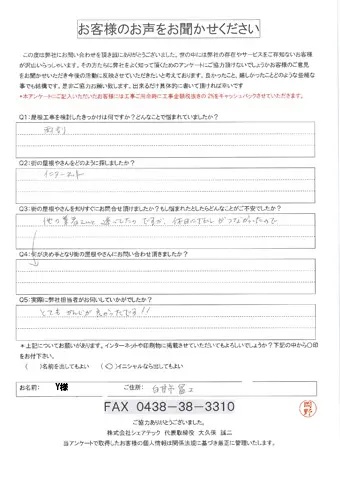 お客様のお声をお聞かせください
この度は弊社にお問い合わせを頂き誠にありがとうございました。世の中には弊社の存在やサービスをご存知ないお客様
が沢山いらっしゃいます。その方たちに弊社をよく知って頂くためのアンケートにご協力頂けないでしょうかお客様のご意見
をお聞かせいただき今後の活動に反映させていただきたいと考えております。良かったこと、嬉しかったことどのような些細な
事でも結構です。是非ご協力お願い致します。出来るだけ具体的に書いて頂ければ幸いです
*本アンケートにご記入いただいたお客様には工事ご完了時に工事金額相当きの2%をキャッシュバックさせていただきます。
Q1:屋根工事を検討したきっかけは何ですか?どんなことで悩まれていましたか?
Q2:街の屋根やさんをどのように探しましたか?
インターネット
Q3:街の屋根やさんを知りすぐにお問合せ頂けましたか?もし悩まれたとしたらどんなことがご不安でしたか?
Q4:何が決め手となり街の屋根やさんにお問い合わせ頂きましたか?
Q5:実際に弊社担当者がお伺いしていかがでしたか?
とても かんじが 良かったです!!
*上記についてお願いがあります。インターネットや印刷物に掲載させていただいてもよろしいでしょうか?下記の中から〇印
をお付下さい。
( )名前を出してもよい (〇)イニシャルなら出してもよい
お名前: Y様 ご住所:
FAX 0438-38-3310
ご協力ありがとうございました。
株式会社シェアテック 代表取締役 大久保 誠二
当アンケートで取得したお客様の個人情報は関係法規に基づき厳正に管理いたします。